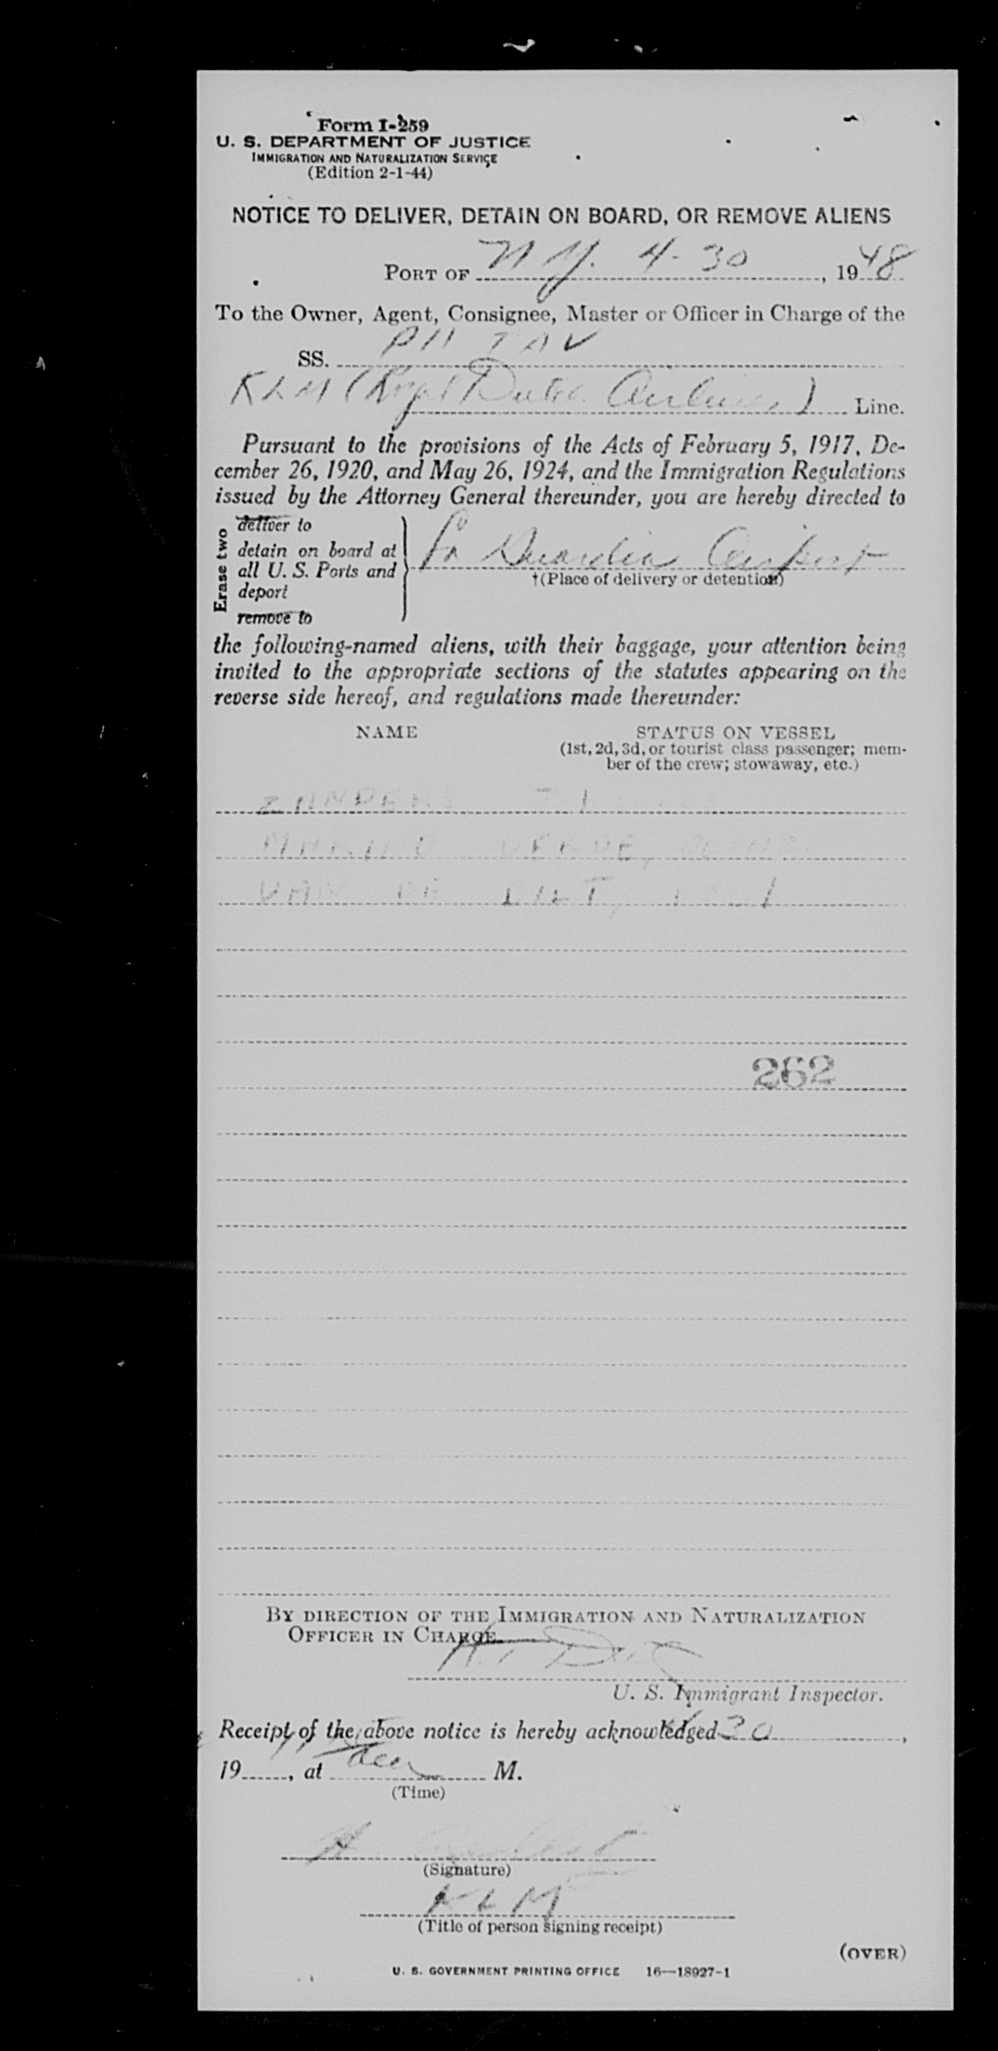 Form I-259
U. S. DEPARTMENT OF JUSTICE
IMMIGRATION AND NATURALIZATION SERVICE
(Edition 2-1-44)
NOTICE TO DELIVER, DETAIN ON BOARD, OR REMOVE ALIENS
PORT OF N Y. 4-30, 1948
To the Owner, Agent, Consignee, Master or Officer in Charge of the
SS. PH TAV
KLM (Royal Dutch Airlines) Line.
Pursuant to the provisions of the Acts of February 5, 1917, De-
cember 26, 1920, and May 26, 1924, and the Immigration Regulations
issued by the Attorney General thereunder, you are hereby directed to
Erase two
deliver to
detain on board at
all U. S. Ports and
deport
remove to
La Guardia Airport
†(Place of delivery or detention)
the following-named aliens, with their baggage, your attention being
invited to the appropriate sections of the statutes appearing on the
reverse side hereof, and regulations made thereunder:
NAME
STATUS ON VESSEL
(1st, 2d, 3d, or tourist class passenger; mem-
ber of the crew; stowaway, etc.)
VAN
262
BY DIRECTION OF THE IMMIGRATION AND NATURALIZATION
OFFICER IN CHARGE
U. S. Immigrant Inspector.
Receipt of the above notice is hereby acknowledged 30,
19, at M.
(Time)
(Signature)
KLM
(Title of person signing receipt)
(OVER)
U. S. GOVERNMENT PRINTING OFFICE 16—18927-1